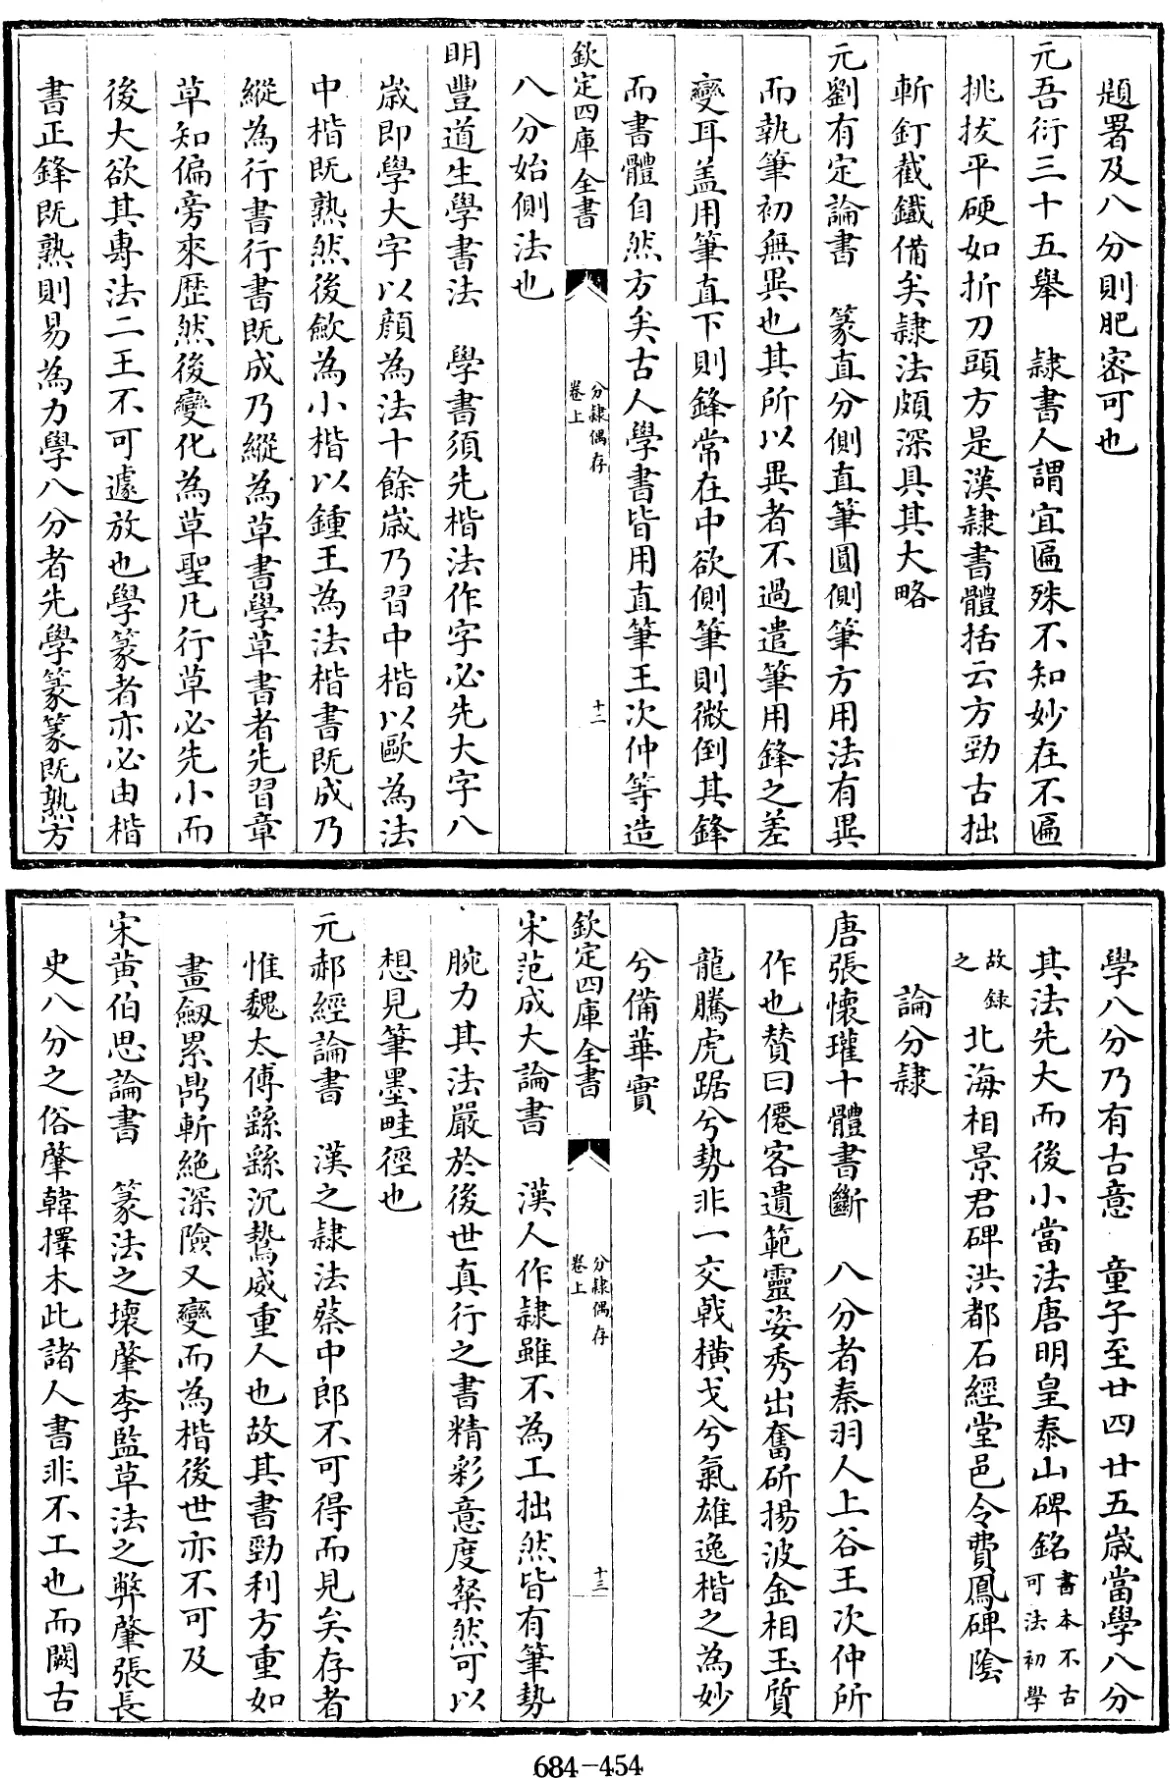 題署及八分則肥密可也
元吾衍三十五舉　隸書人謂宜匾殊不知妙在不匾
挑拔平硬如折刀頭方是漢隸書體括云方勁古拙
斬釘截鐵備矣隸法頗深具其大略
元劉有定論書　篆直分側直筆圓側筆方用法有異
而執筆初無異也其所以異者不過遣筆用鋒之差
變耳盖用筆直下則鋒常在中欲側筆則微倒其鋒
而書體自然方矣古人學書皆用直筆王次仲等造
欽定四庫全書
分隸偶存
卷上
十二
八分始側法也
明豐道生學書法　學書須先楷法作字必先大字八
歲即學大字以顔為法十餘歲乃習中楷以歐為法
中楷既熟然後歛為小楷以鍾王為法楷書既成乃
縱為行書行書既成乃縱為草書學草書者先習章
草知偏旁來歷然後變化為草聖凡行草必先小而
後大欲其專法二王不可遽放也學篆者亦必由楷
書正鋒既熟則易為力學八分者先學篆篆既熟方
學八分乃有古意　童子至廿四廿五歲當學八分
其法先大而後小當法唐明皇泰山碑銘書本不古可法初學
故錄之北海相景君碑洪都石經堂邑令費鳳碑陰
論分隸
唐張懷瓘十體書斷　八分者秦羽人上谷王次仲所
作也贊曰僊客遺範靈姿秀出奮斫揚波金相玉質
龍騰虎踞兮勢非一交戟橫戈兮氣雄逸楷之為妙
兮備華實
欽定四庫全書
分隸偶存
卷上
十三
宋范成大論書　漢人作隸雖不為工拙然皆有筆勢
腕力其法嚴於後世真行之書精彩意度粲然可以
想見筆墨畦徑也
元郝經論書　漢之隸法蔡中郎不可得而見矣存者
惟魏太傅繇繇沉鷙威重人也故其書勁利方重如
畫劒累鼎斬絶深險又變而為楷後世亦不可及
宋黄伯思論書　篆法之壞肇李監草法之弊肇張長
史八分之俗肇韓擇木此諸人書非不工也而闕古
684-454